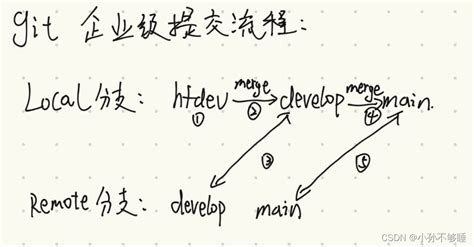 git 企业级提交流程:
Local分支: htdev merge develop merge main.
① ② ④
③ ⑤
Remote分支: develop main
CSDN @小孙不够睡